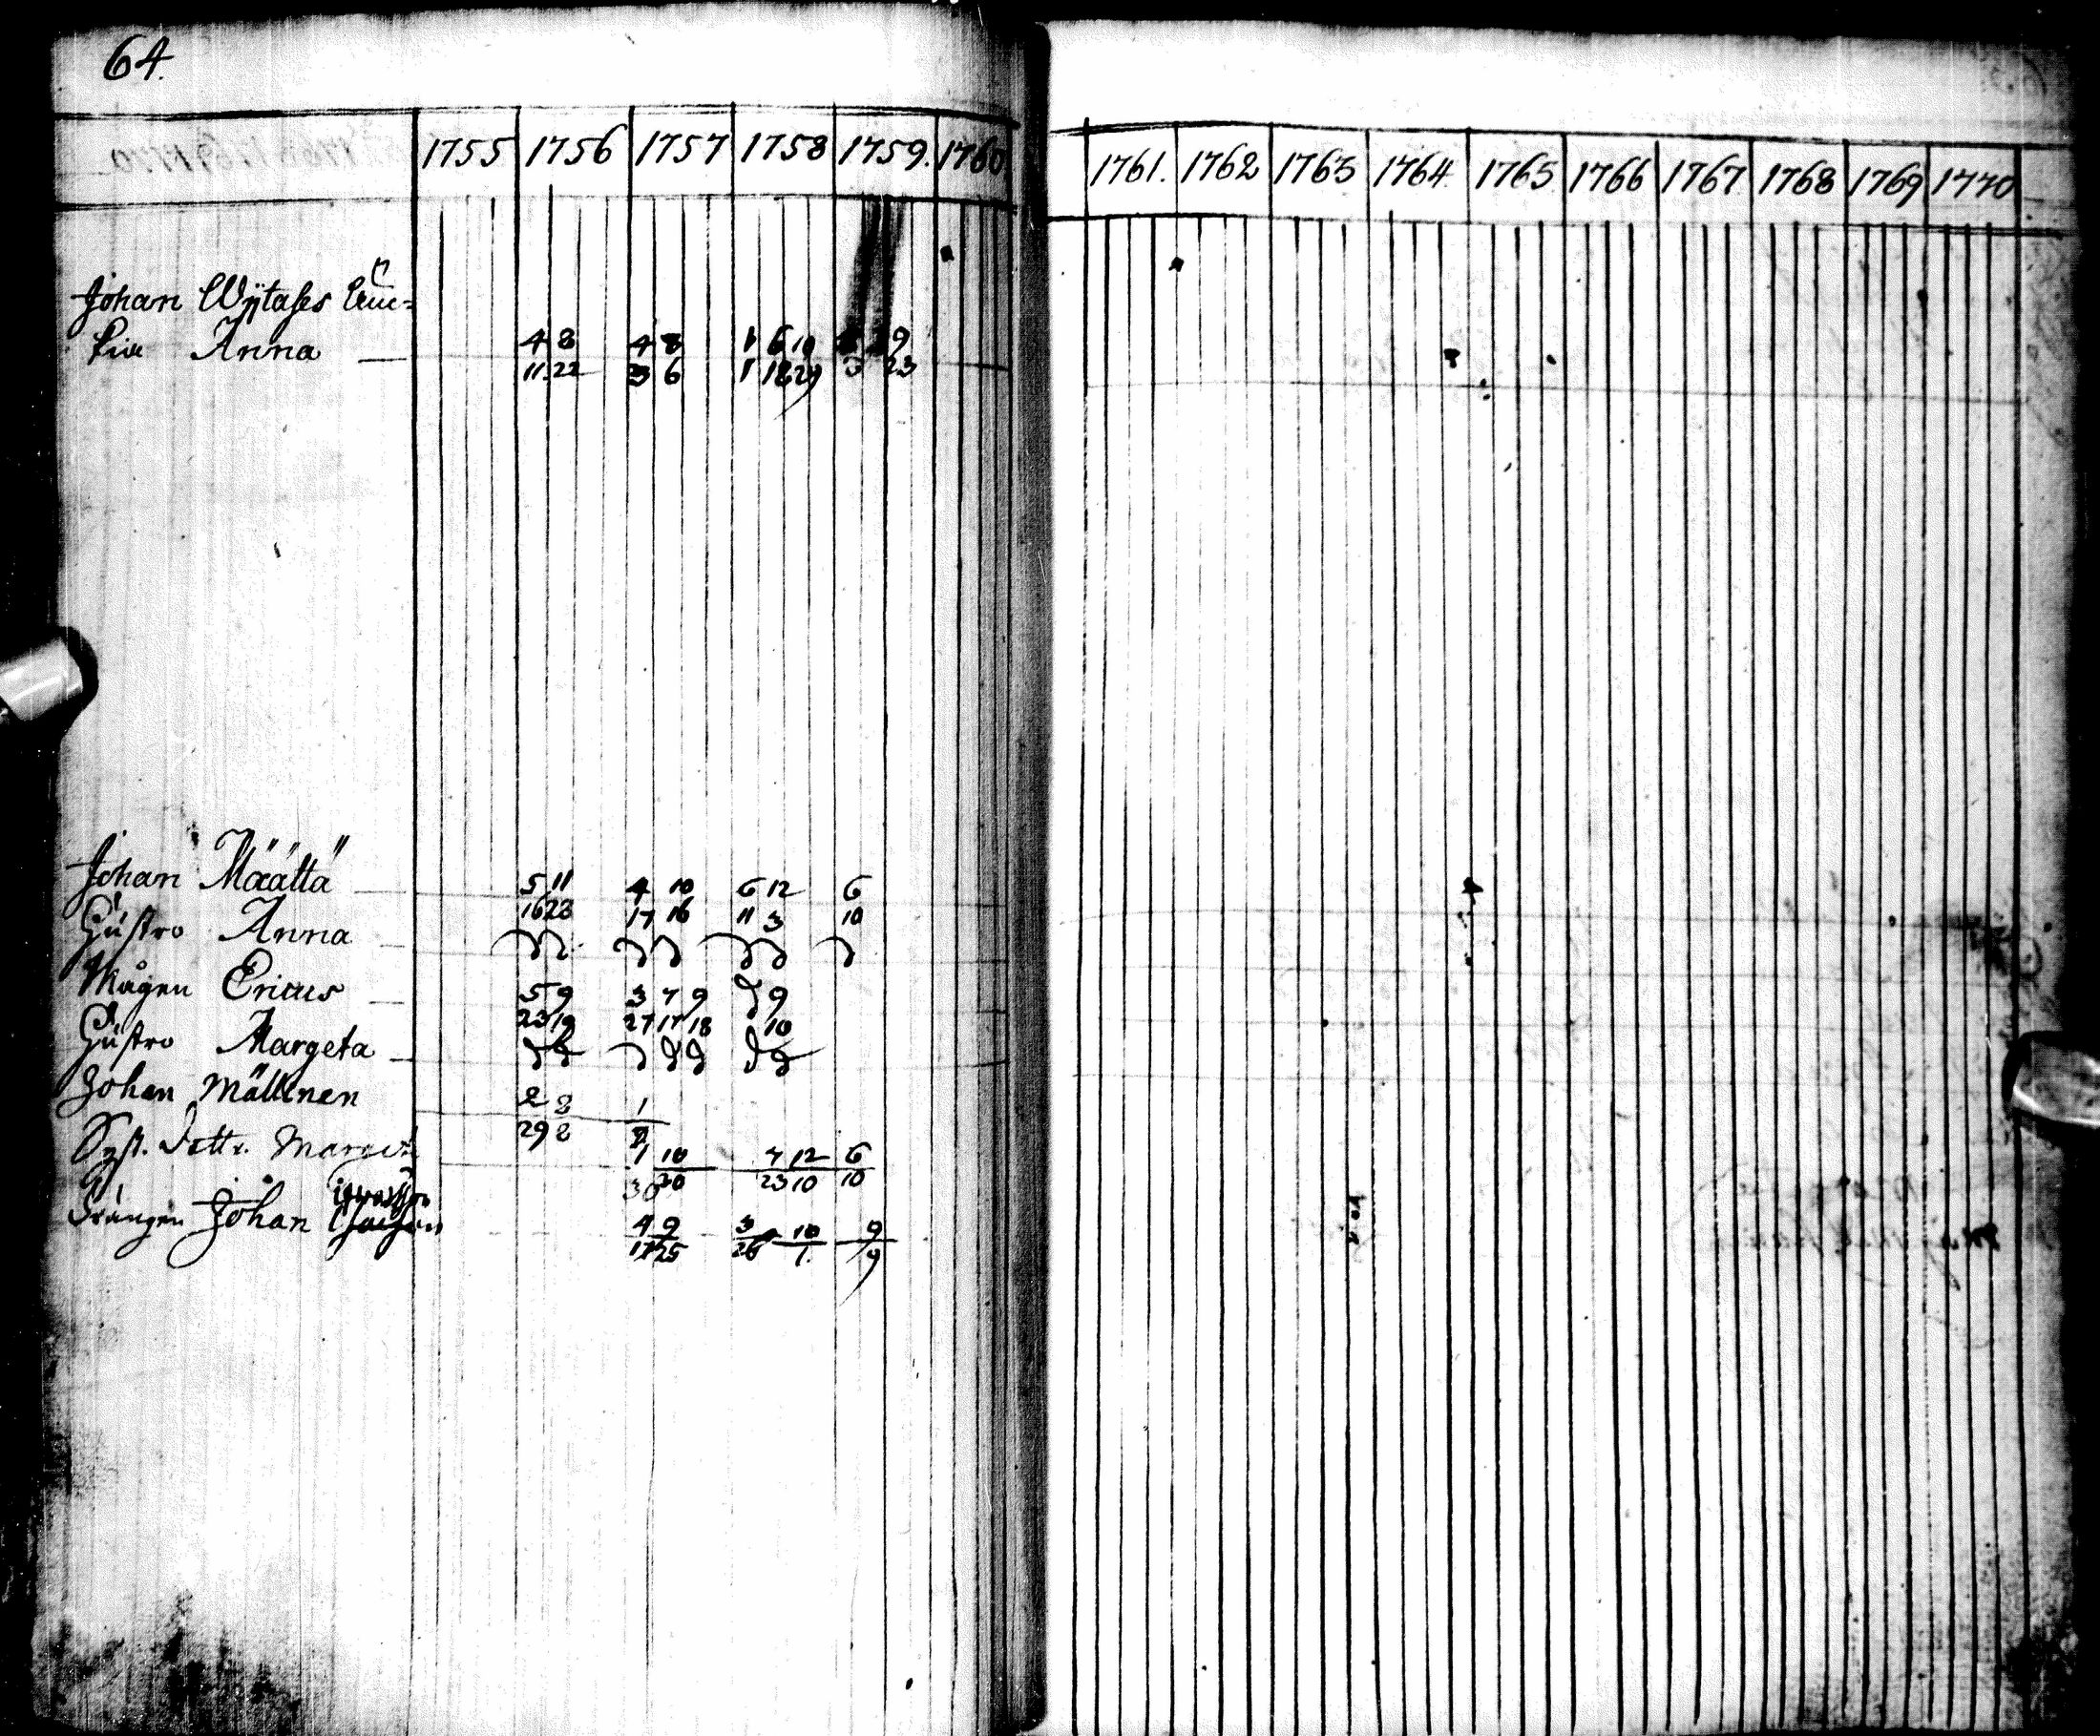 64.
1755 1756 1757 1758 1759. 1760
1761. 1762 1763 1764 1765 1766 1767 1768 1769 1770
Johan Wijtases
Anna 4 8 4 8 1 6 10 9
11 22 3 6 1 18 29 3 23
Johan Määttä 5 11 4 10 6 12 6
16 23 17 16 11 3 10
Hustro Anna
Mågen Ericus 5 9 3 7 9 9
23 19 27 17 18 10
Hustro Margeta
Johan Mällinen 2 8 1
29 8
Syst. Dottr. Marget 1 10 7 12 6
30 30 23 10 10
Drängen Johan 4 9 3 10 9
17 25 26 1. 9